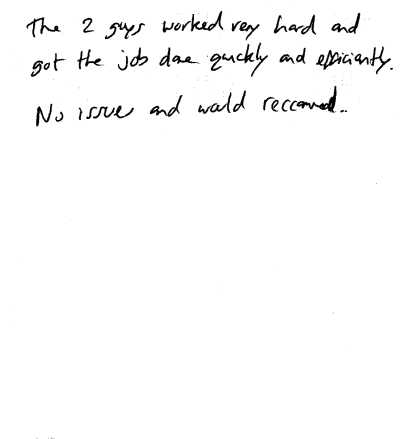 The 2 guys worked very hard and
got the job done quickly and efficiently.
No issue and would reccomend..